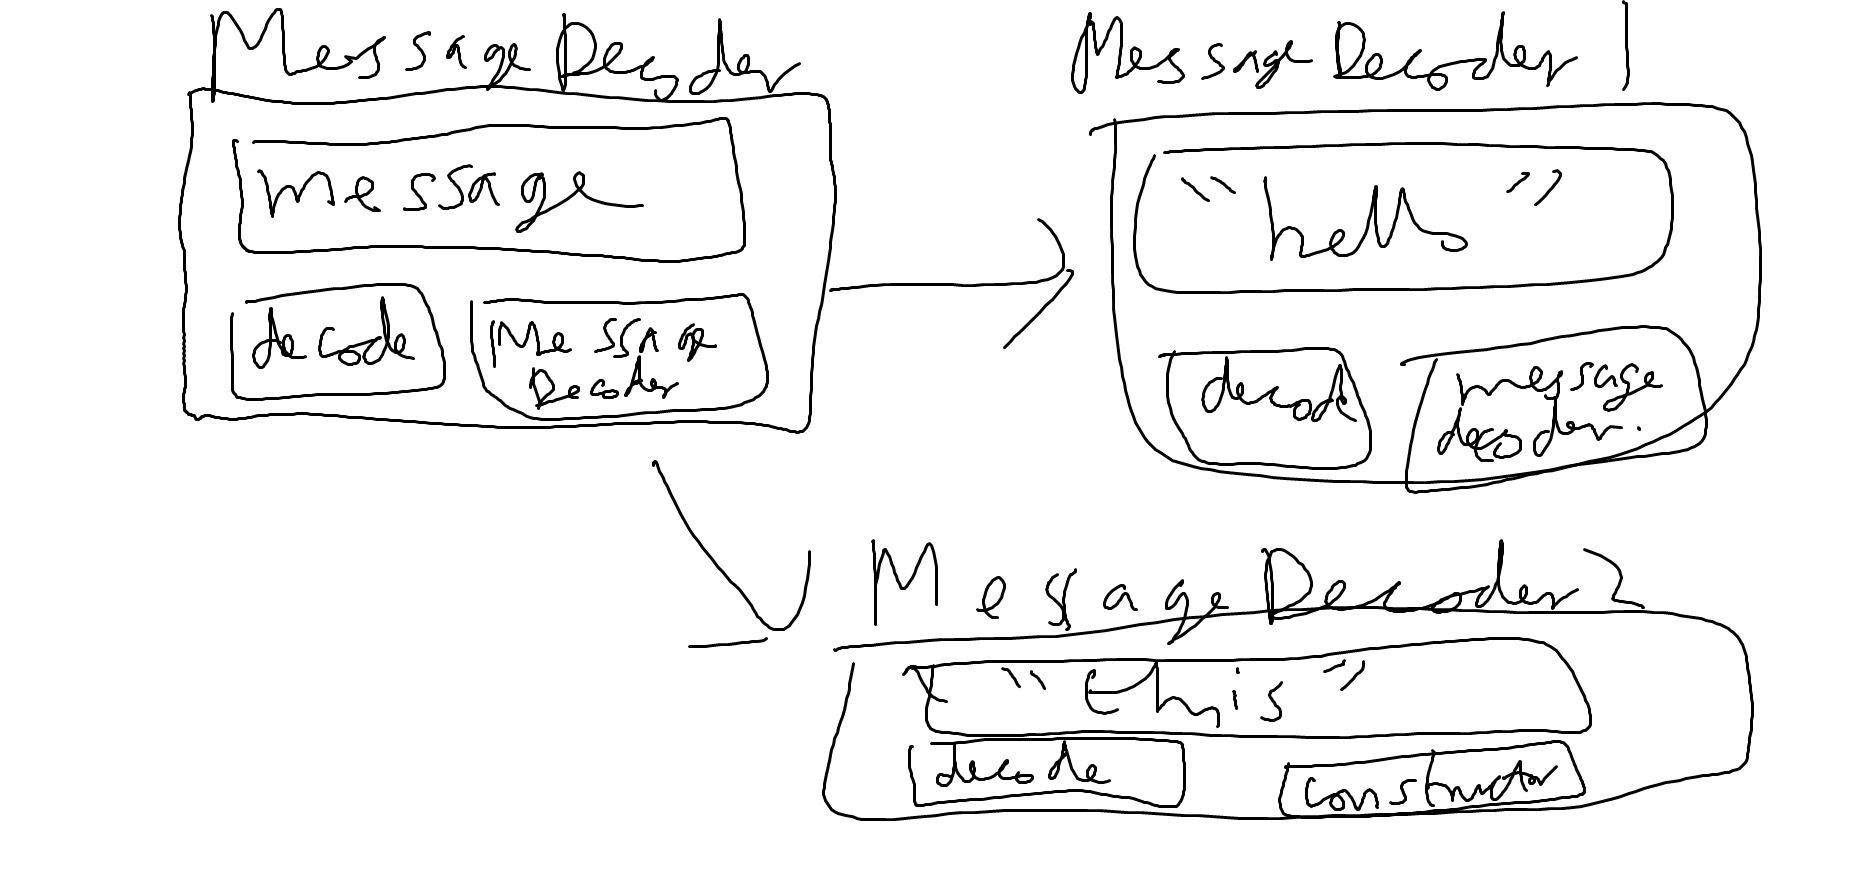 MessageDecoder
message
decode
Message
Decoder
MessageDecoder 1
"hello"
decode
message
decoder.
MessageDecoder 2
"this"
decode
constructor